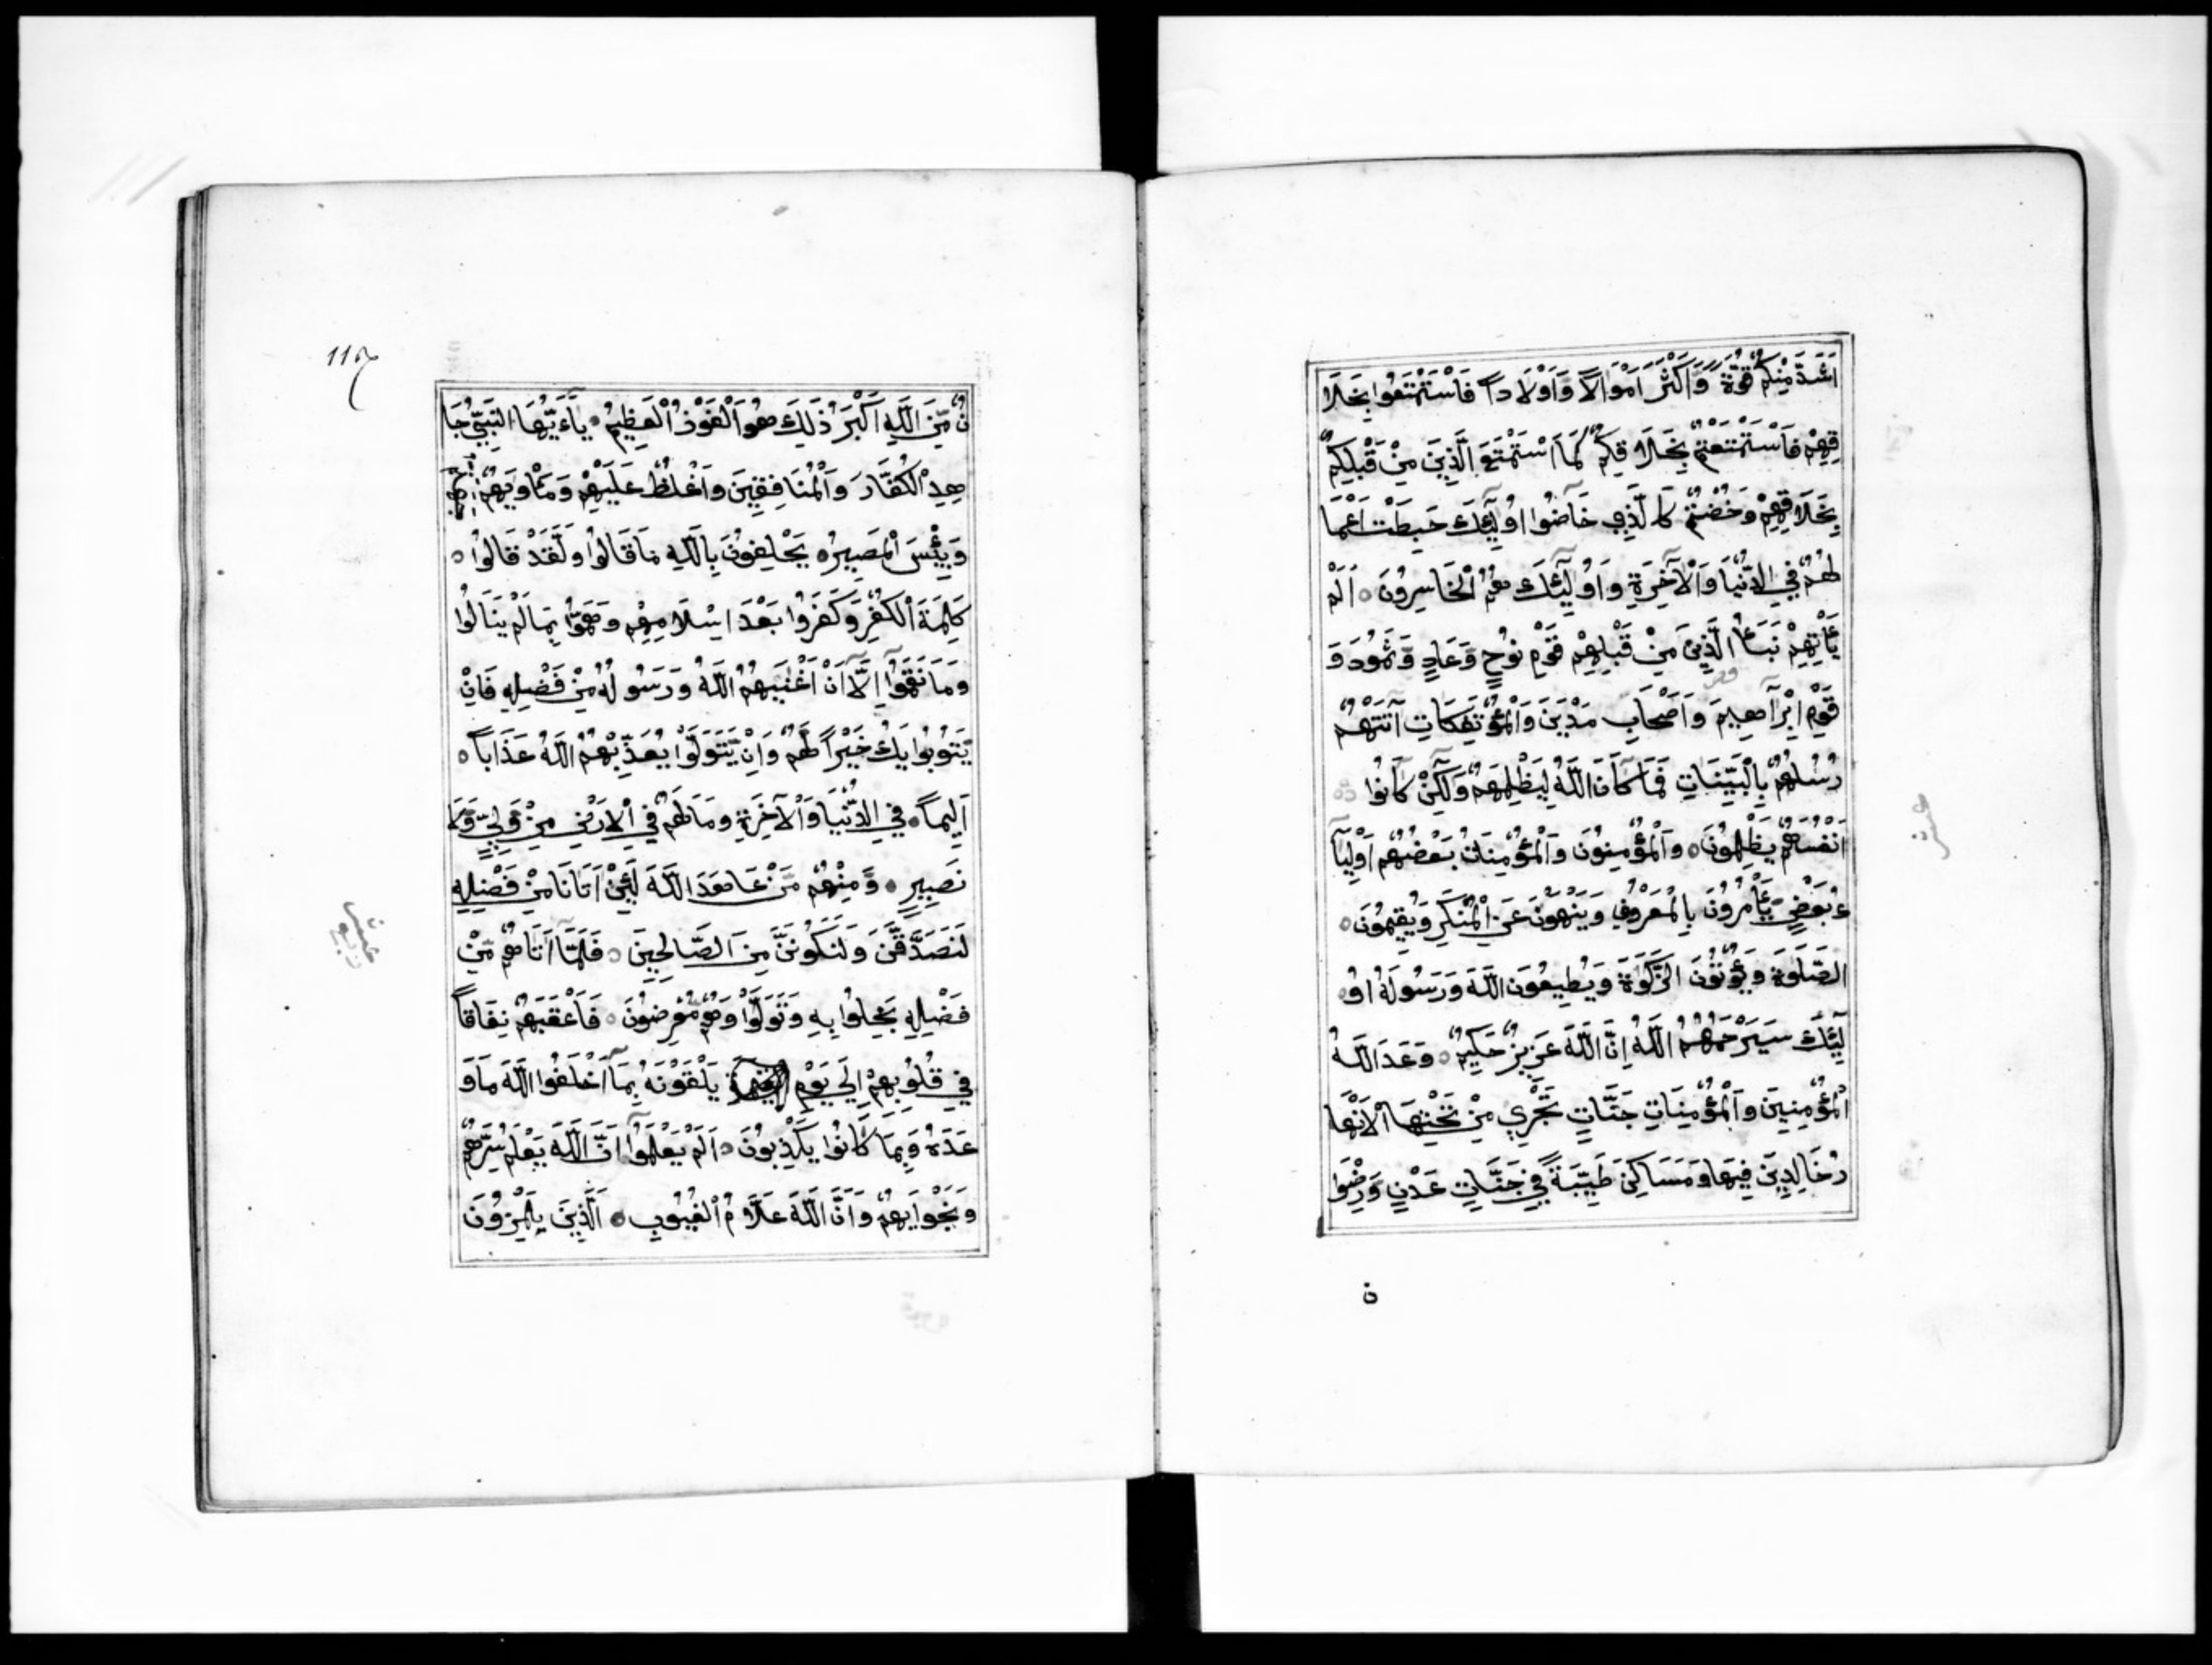 اَشَدَّ مِنْكُمْ قُوَّةً وَّاَكْثَرَ اَمْوَالاً وَّاَوْلَاداً فَاَسْتَمْتَعُوا بِخَلَا
قِهِمْ فَاَسْتَمْتَعْتُمْ بِخَلَاقِكُمْ كَمَا اَسْتَمْتَعَ الَّذِيْنَ مِنْ قَبْلِكُمْ
بِخَلَاقِهِمْ وَخُضْتُمْ كَالَّذِي خَاَضُوا اُولٰٓئِكَ حَبِطَتْ اَعْمَا
لُهُمْ فِي الدُّنْيَا وَالْاٰخِرَةِ وَاُولٰٓئِكَ هُمُ الْخَاسِرُونَ ٥ اَلَمْ
يَأْتِهِمْ نَبَأُ الَّذِيْنَ مِنْ قَبْلِهِمْ قَوْمِ نُوْحٍ وَّعَادٍ وَّثَمُودَ وَ
قَوْمِ اِبْرَاهِيمَ وَاَصْحَابِ مَدْيَنَ وَالْمُؤْتَفِكَاتِ اَتَتْهُمْ
رُسُلُهُمْ بِالْبَيِّنَاتِ فَمَا كَانَ اللّٰهُ لِيَظْلِمَهُمْ وَلٰكِنْ كَانُوا
اَنْفُسَهُمْ يَظْلِمُونَ ٥ وَالْمُؤْمِنُونَ وَالْمُؤْمِنَاتُ بَعْضُهُمْ اَوْلِيَآ
ءُ بَعْضٍ يَّأْمُرُونَ بِالْمَعْرُوفِ وَيَنْهَوْنَ عَنِ الْمُنْكَرِ وَيُقِيمُونَ ٥
الصَّلٰوةَ وَيُؤْتُونَ الزَّكٰوةَ وَيُطِيعُونَ اللّٰهَ وَرَسُولَهُ اُو٥
لٰٓئِكَ سَيَرْحَمُهُمُ اللّٰهُ اِنَّ اللّٰهَ عَزِيزٌ حَكِيمٌ ٥ وَعَدَ اللّٰهُ
الْمُؤْمِنِينَ وَالْمُؤْمِنَاتِ جَنَّاتٍ تَجْرِي مِنْ تَحْتِهَا الْاَنْهَا
رُ خَالِدِينَ فِيهَا وَمَسَاكِنَ طَيِّبَةً فِي جَنَّاتِ عَدْنٍ وَّرِضْوَا
ن
نٌ مِّنَ اللّٰهِ اَكْبَرُ ذٰلِكَ هُوَ الْفَوْزُ الْعَظِيمُ ٥ يٰٓاَيُّهَا النَّبِيُّ جَا
هِدِ الْكُفَّارَ وَالْمُنَافِقِينَ وَاغْلُظْ عَلَيْهِمْ وَمَأْوٰيهُمْ جَهَنَّمُ
وَبِئْسَ الْمَصِيرُ ٥ يَحْلِفُونَ بِاللّٰهِ مَا قَالُوا وَلَقَدْ قَالُوا ٥
كَلِمَةَ الْكُفْرِ وَكَفَرُوا بَعْدَ اِسْلَامِهِمْ وَهَمُّوا بِمَا لَمْ يَنَالُوا
وَمَا نَقَمُوا اِلَّا اَنْ اَغْنٰيهُمُ اللّٰهُ وَرَسُولُهُ مِنْ فَضْلِهِ فَاِنْ
يَتُوبُوا يَكُ خَيْراً لَّهُمْ وَاِنْ يَّتَوَلَّوْا يُعَذِّبْهُمُ اللّٰهُ عَذَاباً ٥
اَلِيماً ٥ فِي الدُّنْيَا وَالْاٰخِرَةِ وَمَا لَهُمْ فِي الْاَرْضِ مِنْ وَلِيٍّ وَّلَا
نَصِيرٍ ٥ وَمِنْهُمْ مَّنْ عَاهَدَ اللّٰهَ لَئِنْ اٰتَانَا مِنْ فَضْلِهِ
لَنَصَّدَّقَنَّ وَلَنَكُونَنَّ مِنَ الصَّالِحِينَ ٥ فَلَمَّا اٰتَاهُمْ مِّنْ
فَضْلِهِ بَخِلُوا بِهِ وَتَوَلَّوْا وَّهُمْ مُّعْرِضُونَ ٥ فَاَعْقَبَهُمْ نِفَاقاً
فِي قُلُوبِهِمْ اِلٰي يَوْمِ يَلْقَوْنَهُ بِمَا اَخْلَفُوا اللّٰهَ مَا وَ
عَدُوهُ وَبِمَا كَانُوا يَكْذِبُونَ ٥ اَلَمْ يَعْلَمُوا اَنَّ اللّٰهَ يَعْلَمُ سِرَّهُمْ
وَنَجْوٰيهُمْ وَاَنَّ اللّٰهَ عَلَّامُ الْغُيُوبِ ٥ اَلَّذِينَ يَلْمِزُونَ